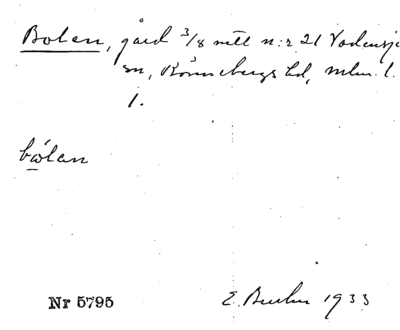 Bolen, gård 3/8 mtl n:r 21 Vadensjö
sn, Rönnebergs hd, mlm. l.
1.
bólen
Nr 5795
E. Buhr 1933